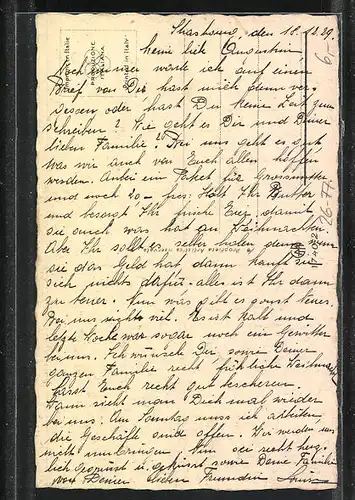 Strasbourg, den 18.12.29.
Meine liebe Augustine,
Noch immer warte ich auf einen
Brief von Dir hast mich denn ver-
gessen oder hast Du keine Zeit zum
schreiben? Wie geht es Dir und Deiner
lieben Familie? Bei uns geht es gut
was wir auch von Euch allen hoffen
werden. Anbei ein Paket für Grossmutter
und noch 20 frs: Holt Ihr Butter
und besorgt Ihr für Eier damit
sie auch was hat an Weihnachten.
Aber Ihr sollt es selber holen denn wenn
sie das Geld hat dann kauft sie
sich nichts dafür - alles ist Ihr dann
zu teuer. Nun was gibt es sonst neues.
Bei uns nichts viel. Es ist kalt und
letzte Woche war sogar noch ein Gewitter
bei uns. Ich wünsche Dir sowie Deiner
ganzen Familie recht fröhliche Weihnacht
lasst Euch recht gut bescheren.
Wann sieht man Dich mal wieder
bei uns. Am Sonntag muss ich arbeiten
die Geschäfte sind offen. Wir werden uns
nicht umbringen. Nun sei recht herz-
lich gegrüsst u. geküsst sowie Deine Familie
von Deiner lieben Freundin
PRODUZIONE
ITALIANA
Printed in Italy